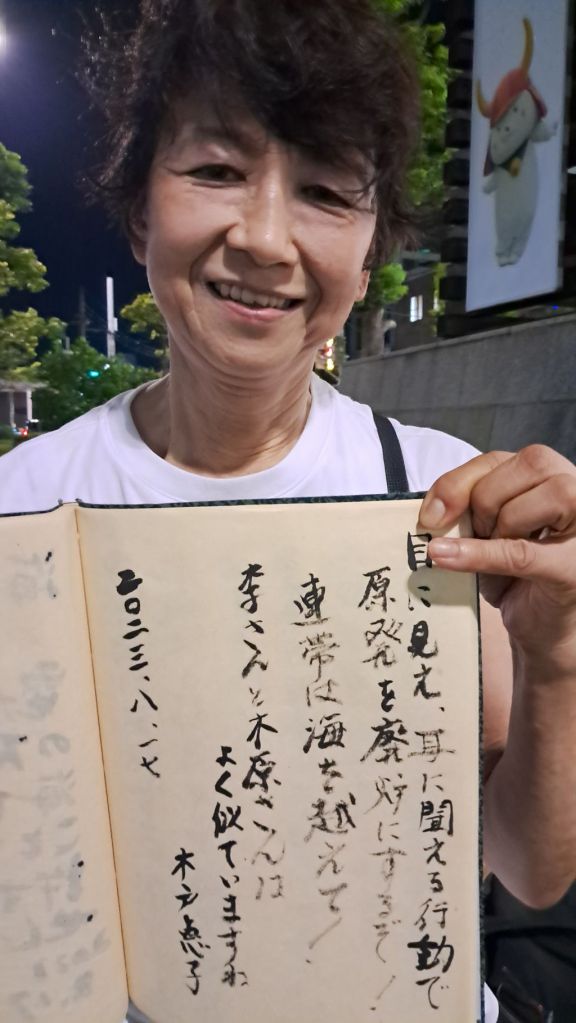 目に見え、耳に聞える行動で
原発を廃炉にするぞ！
連帯は海を越えて！
李さんと木原さんは
よく似ていますね
木戸恵子
二〇二三、八、一七